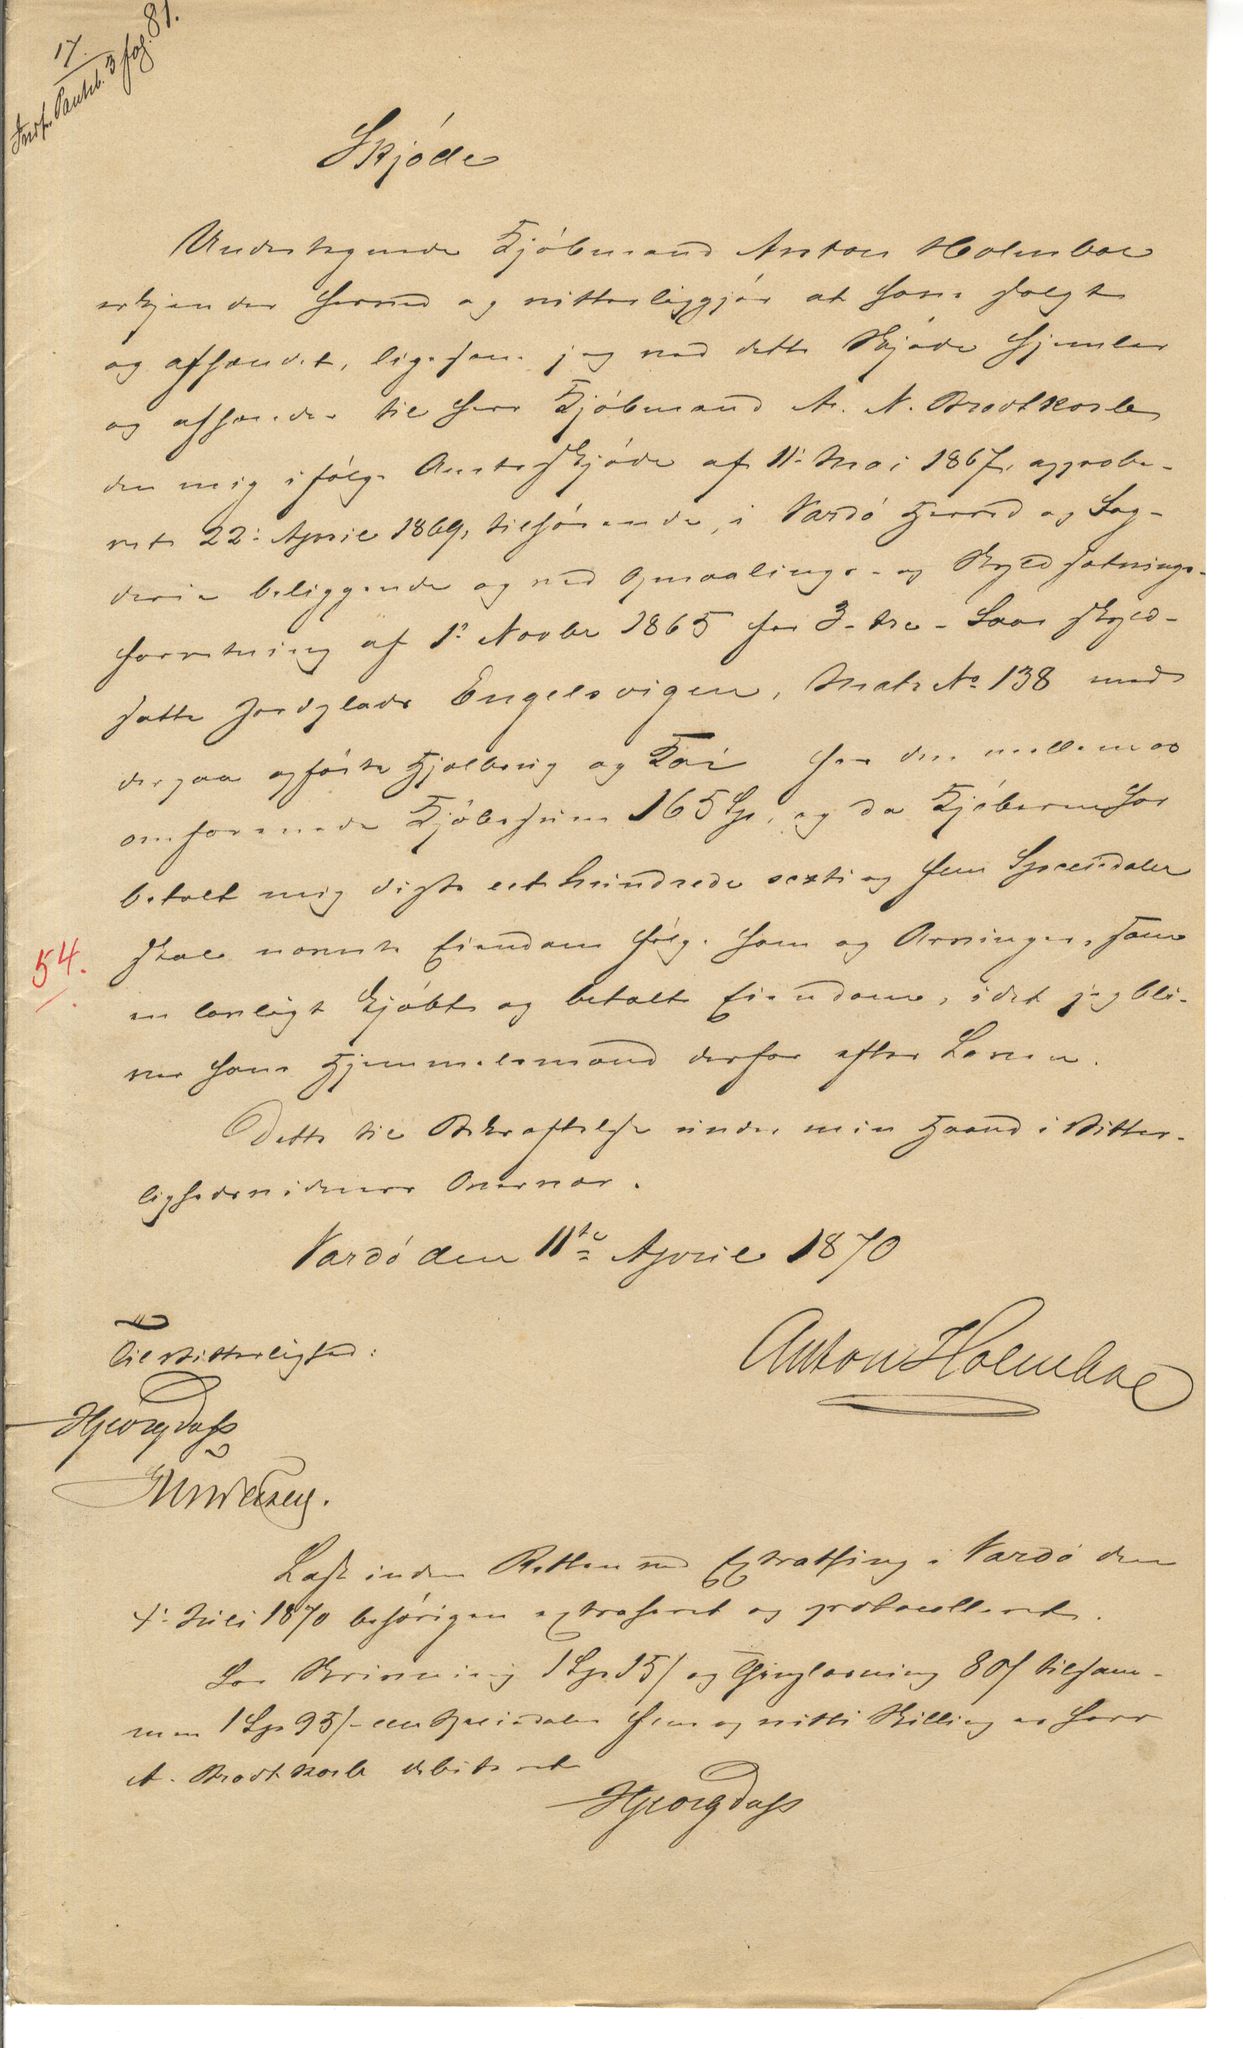 17.
Indf. Panteb. 3 fol. 81.
Skjöde
Undertegnede Kjöbmand Anton Holmboe
erkjender herved og vitterliggjör at have solgt
og afhændet, ligesom jeg ved dette Skjöde hjemler
og afhænder til Herr Kjöbmand A. N. Brodtkorb
den mig ifölge Amtsskjöde af 11. Mai 1867, approbe-
ret 22. April 1869, tilhörende, i Vardö Herred og Fog-
deri beliggende og ved Opmaalings- og Skyldsætnings-
forretning af 1. Novbr 1865 for 3 - tre - Søre skyld-
satte Jordplads Engelsvigen, Matr No 138 med
derpaa opförte og for den mellem os
omforenede Kjöbesum 165 Sp, og da Kjöberen har
betalt mig disse et hundrede sexti og fem Speciedaler
skal nævnte Eiendom fölge ham og Arvinger som
en lovligt kjöbt og betalt Eiendom, idet jeg bli-
ver hans Hjemmelsmand derfor efter Loven.
Dette til Bekræftelse under min Haand i Vitter-
lighedsvidners Overvær.
Vardö den 11te April 1870
Anton Holmboe
Til Vitterlighed:
H Georg Dass
54.
Læst inden Retten ved Extrathing i Vardö den
4. Juli 1870 behörigen extraheret og protocolleret.
For Skrivning 1 Sp 15 / og Thinglæsning 80 / tilsam-
men 1 Sp 95 / - een Speciedaler fem og nitti Skilling er Herr
A. Brodtkorb debiteret
H Georg Dass